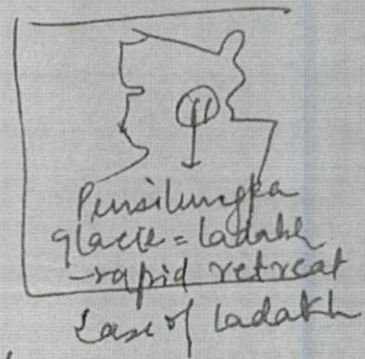 Pensilungpa
glacier = Ladakh
- rapid retreat
Case of Ladakh